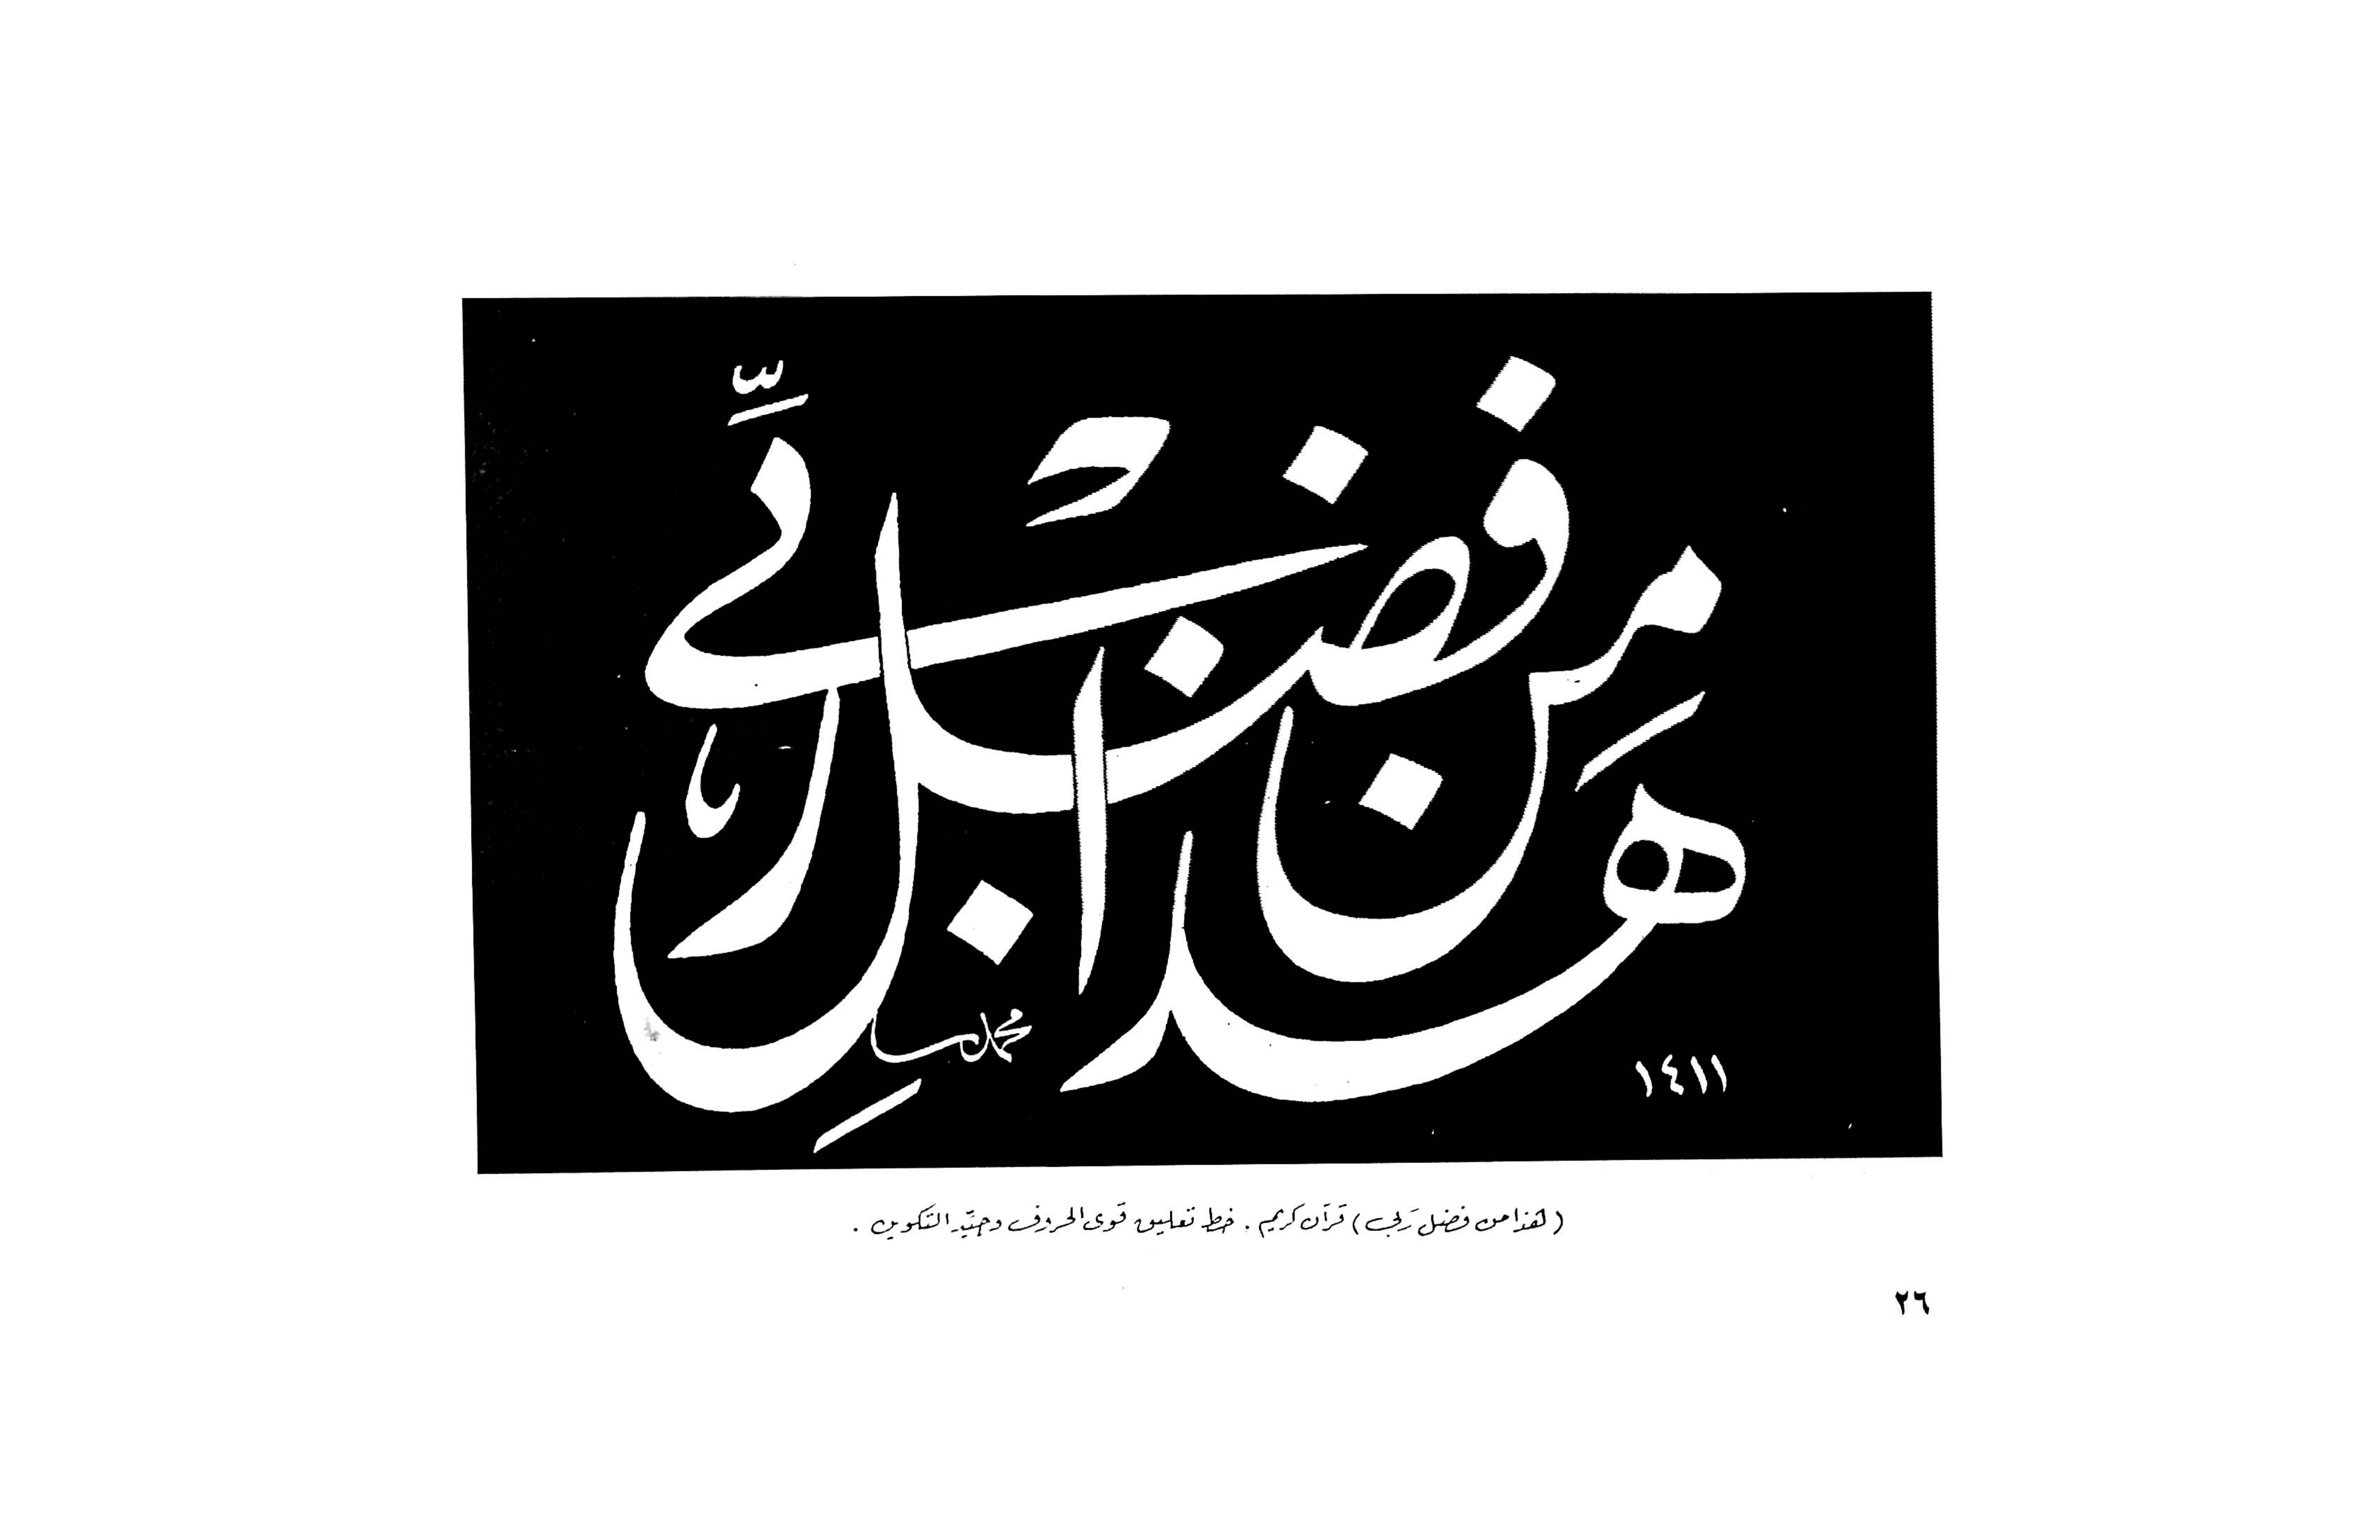 هذا من فضل ربي
١٤١١
(هذا من فضل رَبي) قرآن كريم . خط تعليق قوى الحروف وجيِّد التكوين .
٢٦